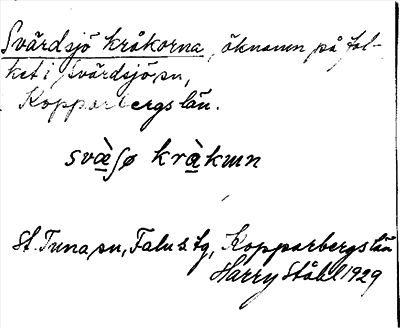 Svärdsjö kråkorna, öknamn på fol-
ket i Svärdsjö sn,
Kopparbergs län.
svæ̀ʃø kràkɯn
St. Tuna sn, Falu &amp; tg, Kopparbergs län
Harry Ståhl 1929